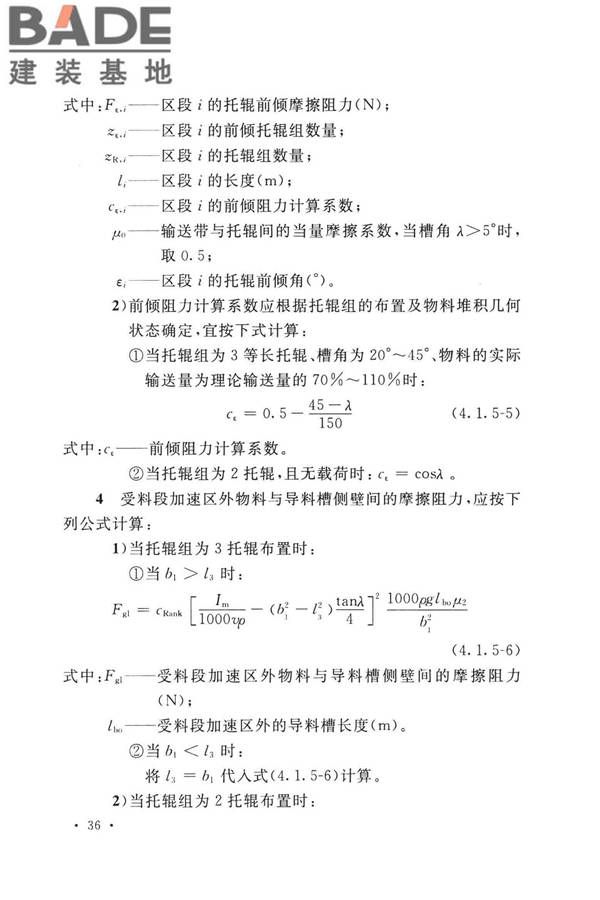 BADE
建装基地
式中:Fε,i——区段 i 的托辊前倾摩擦阻力(N);
zε,i——区段 i 的前倾托辊组数量;
zR,i——区段 i 的托辊组数量;
li——区段 i 的长度(m);
cε,i——区段 i 的前倾阻力计算系数;
μ0——输送带与托辊间的当量摩擦系数,当槽角 λ>5°时,
取 0.5;
εi——区段 i 的托辊前倾角(°)。
2)前倾阻力计算系数应根据托辊组的布置及物料堆积几何
状态确定,宜按下式计算:
①当托辊组为 3 等长托辊、槽角为 20°~45°、物料的实际
输送量为理论输送量的 70%~110%时:
cε = 0.5 − (45 − λ)/150 (4.1.5-5)
式中:cε——前倾阻力计算系数。
②当托辊组为 2 托辊,且无载荷时:cε = cosλ 。
4 受料段加速区外物料与导料槽侧壁间的摩擦阻力,应按下
列公式计算:
1)当托辊组为 3 托辊布置时:
①当 b1 > l3 时:
Fgl = cRank [Im/(1000υρ) − (b1² − l3²) tanλ/4]² 1000ρglboμ2/b1²
(4.1.5-6)
式中:Fgl——受料段加速区外物料与导料槽侧壁间的摩擦阻力
(N);
lbo——受料段加速区外的导料槽长度(m)。
②当 b1 < l3 时:
将 l3 = b1 代入式(4.1.5-6)计算。
2)当托辊组为 2 托辊布置时:
· 36 ·